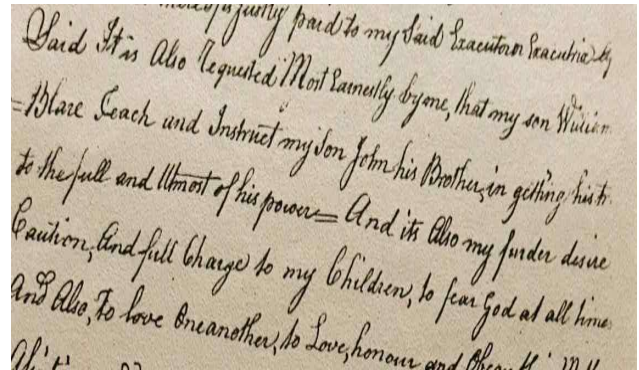 justly paid to my Said Executor or Executrix
Said It is Also Requested Most Earnestly by me, that my son William
=Blare Teach and Instruct my Son John his Brother, in getting his
to the full and Utmost of his power= And its Also my furder desire
Caution, And full Charge to my Children, to fear God at all times
And Also, To love One another, to Love, honour and Obey